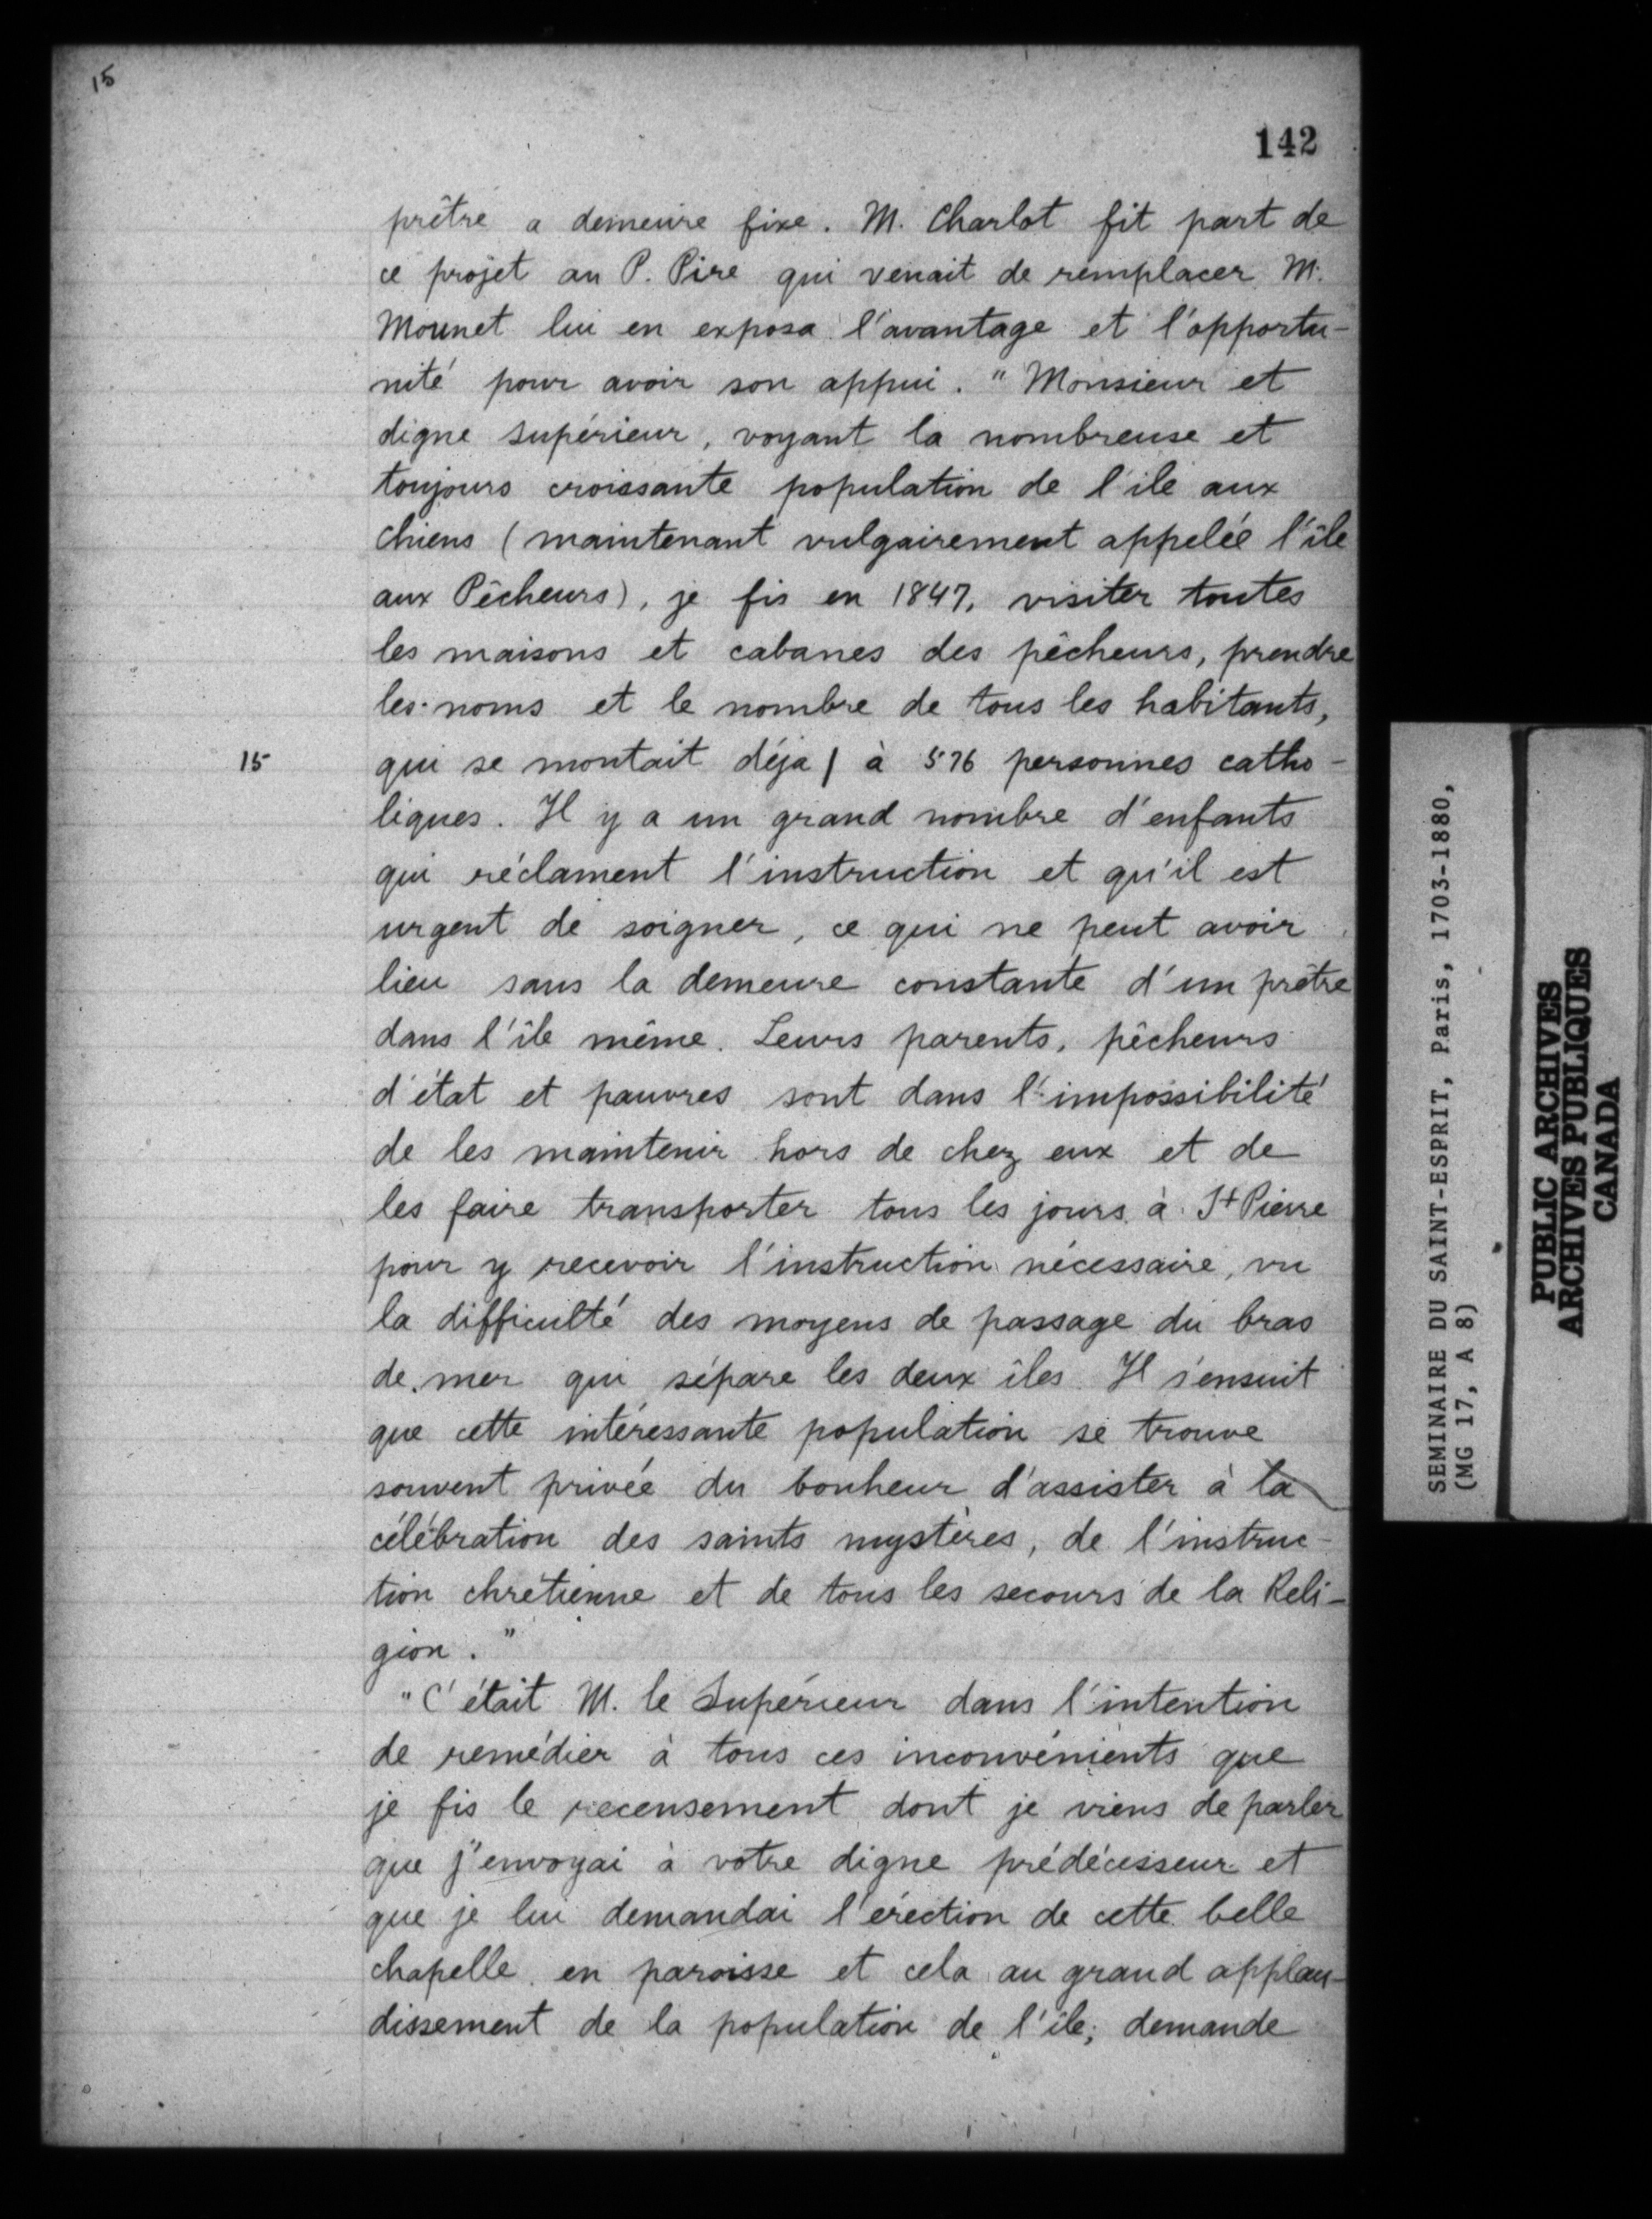 15
142
prêtre a demeure fixe. M. Charlot fit part de
ce projet au P. Pire qui venait de remplacer M.
Mounet lui en exposa l'avantage et l'opportu-
nité pour avoir son appui. "Monsieur et
digne supérieur, voyant la nombreuse et
toujours croissante population de l'ile aux
chiens (maintenant vulgairement appelée l'île
aux Pêcheurs), je fis en 1847, visiter toutes
les maisons et cabanes des pêcheurs, prendre
les noms et le nombre de tous les habitants,
15 qui se montait déja | à 576 personnes catho-
liques. Il y a un grand nombre d'enfants
qui réclament l'instruction et qu'il est
urgent de soigner, ce qui ne peut avoir
lieu sans la demeure constante d'un prêtre
dans l'île même. Leurs parents, pêcheurs
d'état et pauvres sont dans l'impossibilité
de les maintenir hors de chez eux et de
les faire transporter tous les jours à St Pierre
pour y recevoir l'instruction nécessaire, vu
la difficulté des moyens de passage du bras
de mer qui sépare les deux îles. Il s'ensuit
que cette intéressante population se trouve
souvent privée du bonheur d'assister à la
célébration des saints mystères, de l'instruc-
tion chrétienne et de tous les secours de la Reli-
gion."
"C'était M. le Supérieur dans l'intention
de remédier à tous ces inconvénients que
je fis le recensement dont je viens de parler
que j'envoyai à votre digne prédécesseur et
que je lui demandai l'érection de cette belle
chapelle en paroisse et cela au grand applau-
dissement de la population de l'île; demande
SEMINAIRE DU SAINT-ESPRIT, Paris, 1703-1880,
(MG 17, A 8)
PUBLIC ARCHIVES
ARCHIVES PUBLIQUES
CANADA